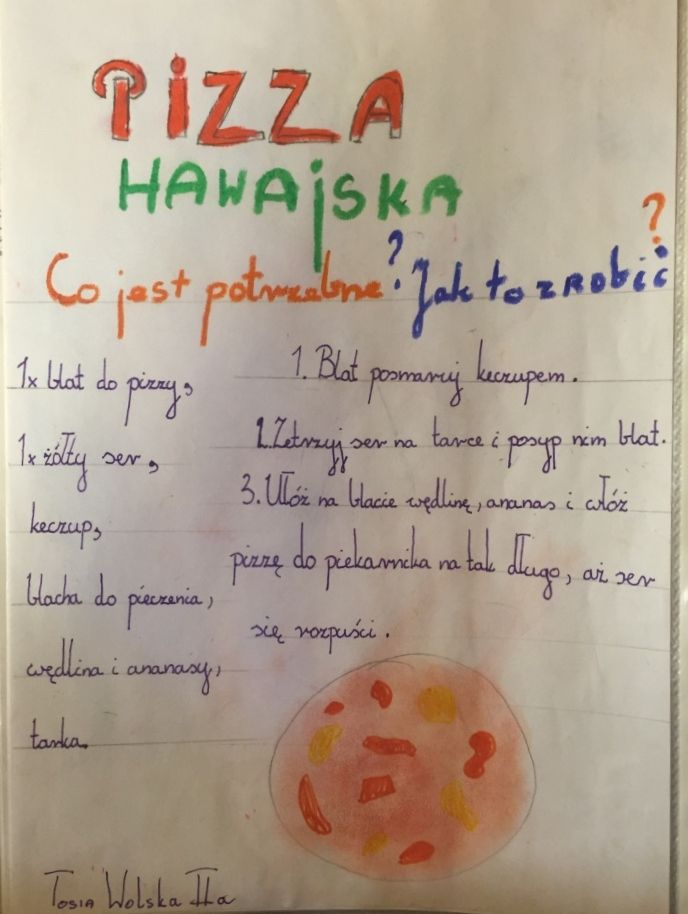 PIZZA
HAWAjSKA
Co jest potrzebne?
1x blat do pizzy,
1x żółty ser,
keczup,
blacha do pieczenia,
wędlina i ananasy,
tarka.
Jak to zrobić?
1. Blat posmaruj keczupem.
2. Zetrzyj ser na tarce i posyp nim blat.
3. Ułóż na blacie wędlinę, ananas i włóż
pizzę do piekarnika na tak długo, aż ser
się rozpuści.
Tosia Wolska IIa